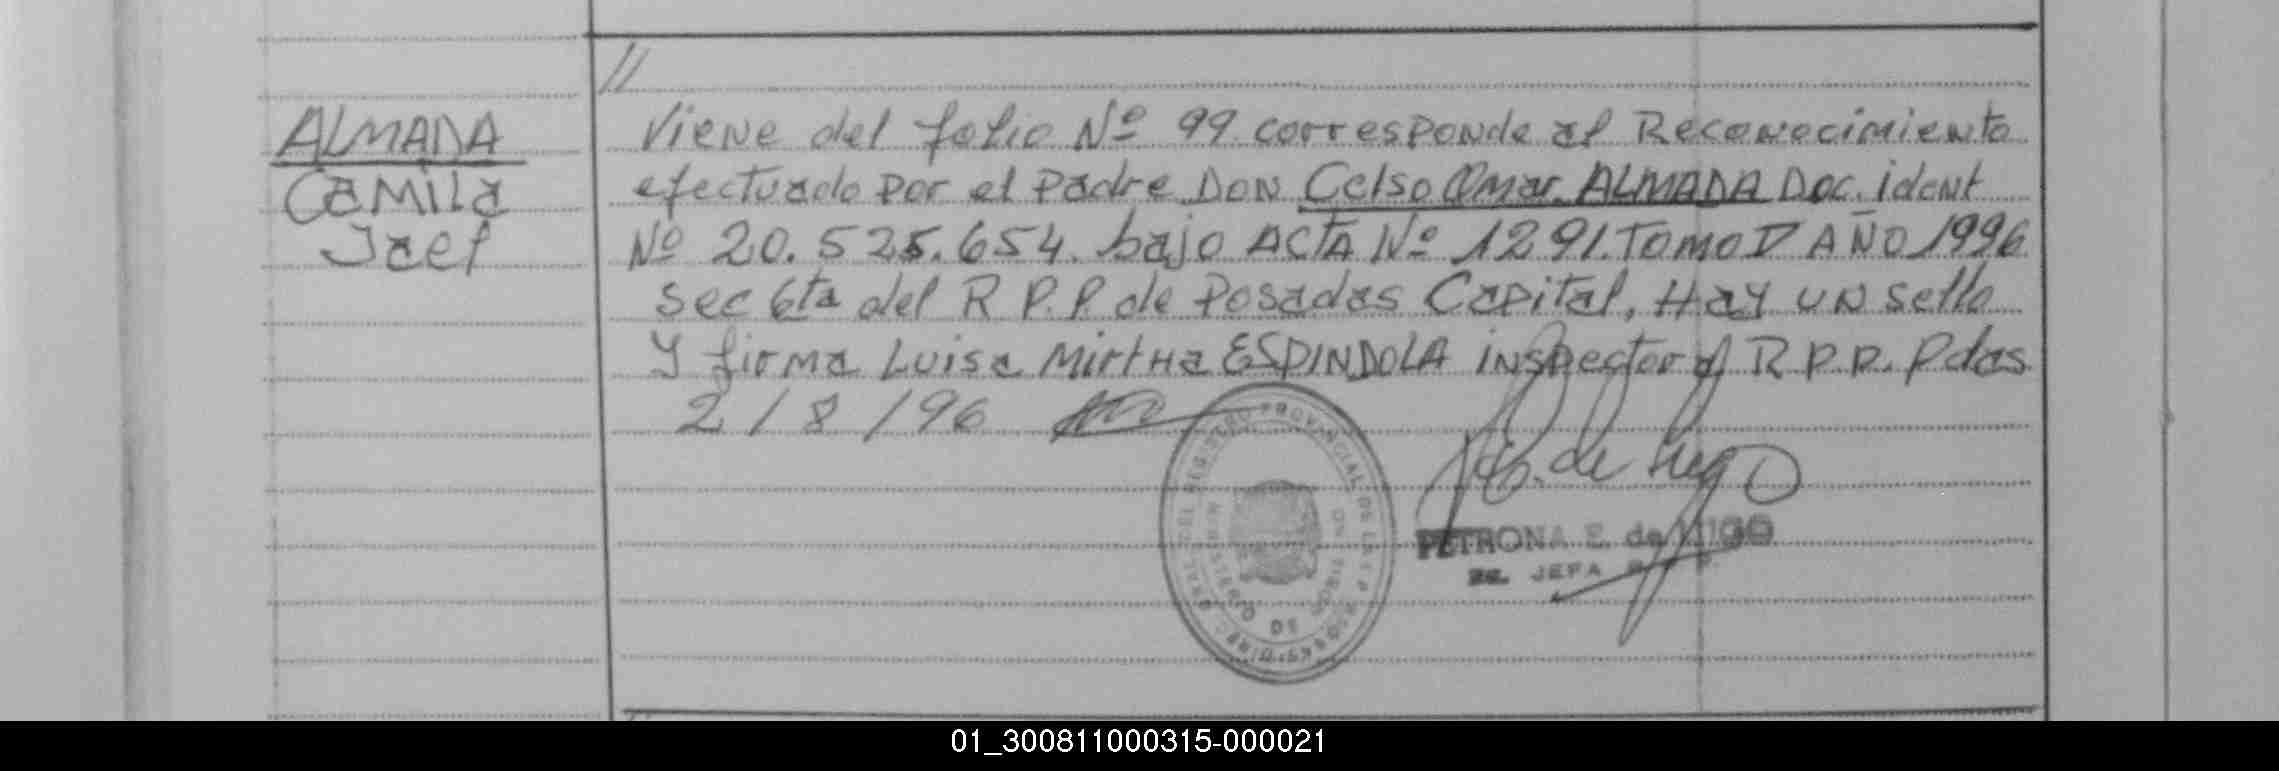 //
ALMADA
Camila
Jael
Viene del folio Nº 99 corresponde al Reconocimiento
efectuado por el Padre DON Celso Omar ALMADA Doc. ident
Nº 20.525.654. bajo ACTA Nº 1291. Tomo V AÑO 1996
Sec 6ta del R P.P. de Posadas Capital, Hay un sello
Y firma Luisa Mirtha ESPINDOLA inspector d R P.P. Pdas
2 / 8 / 96
REGISTRO PROVINCIAL DE LAS P
MINISTERIO DE GOBIERNO
PETRONA E. de
2a. JEFA
01_300811000315-000021